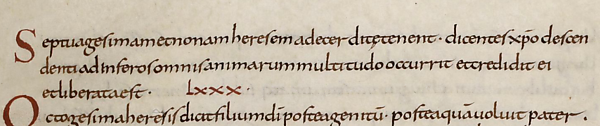 Septuagesimam et nonam heresem adecerdite tenent · dicentes xpo descen
denti ad inferos omnis animarum multitudo occurrit et credidit ei
et liberata est · lxxx ·
Octogesima heresis dicit filium di postea genitu · postea qua voluit pater .